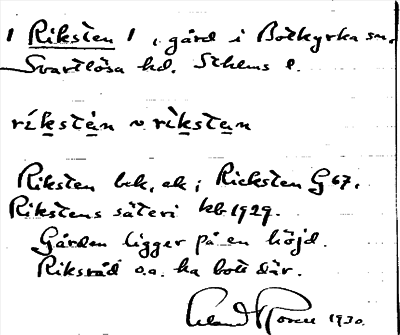 1 Riksten 1, gård i Botkyrka sn.
Svartlösa hd. Sthlms l.
ríkstèn v. rìkstan
Riksten bek. ek; Rieksten G 67.
Rikstens säteri kb 1929.
Gården ligger på en höjd.
Riksråd o.a. ha bott där.
1930.